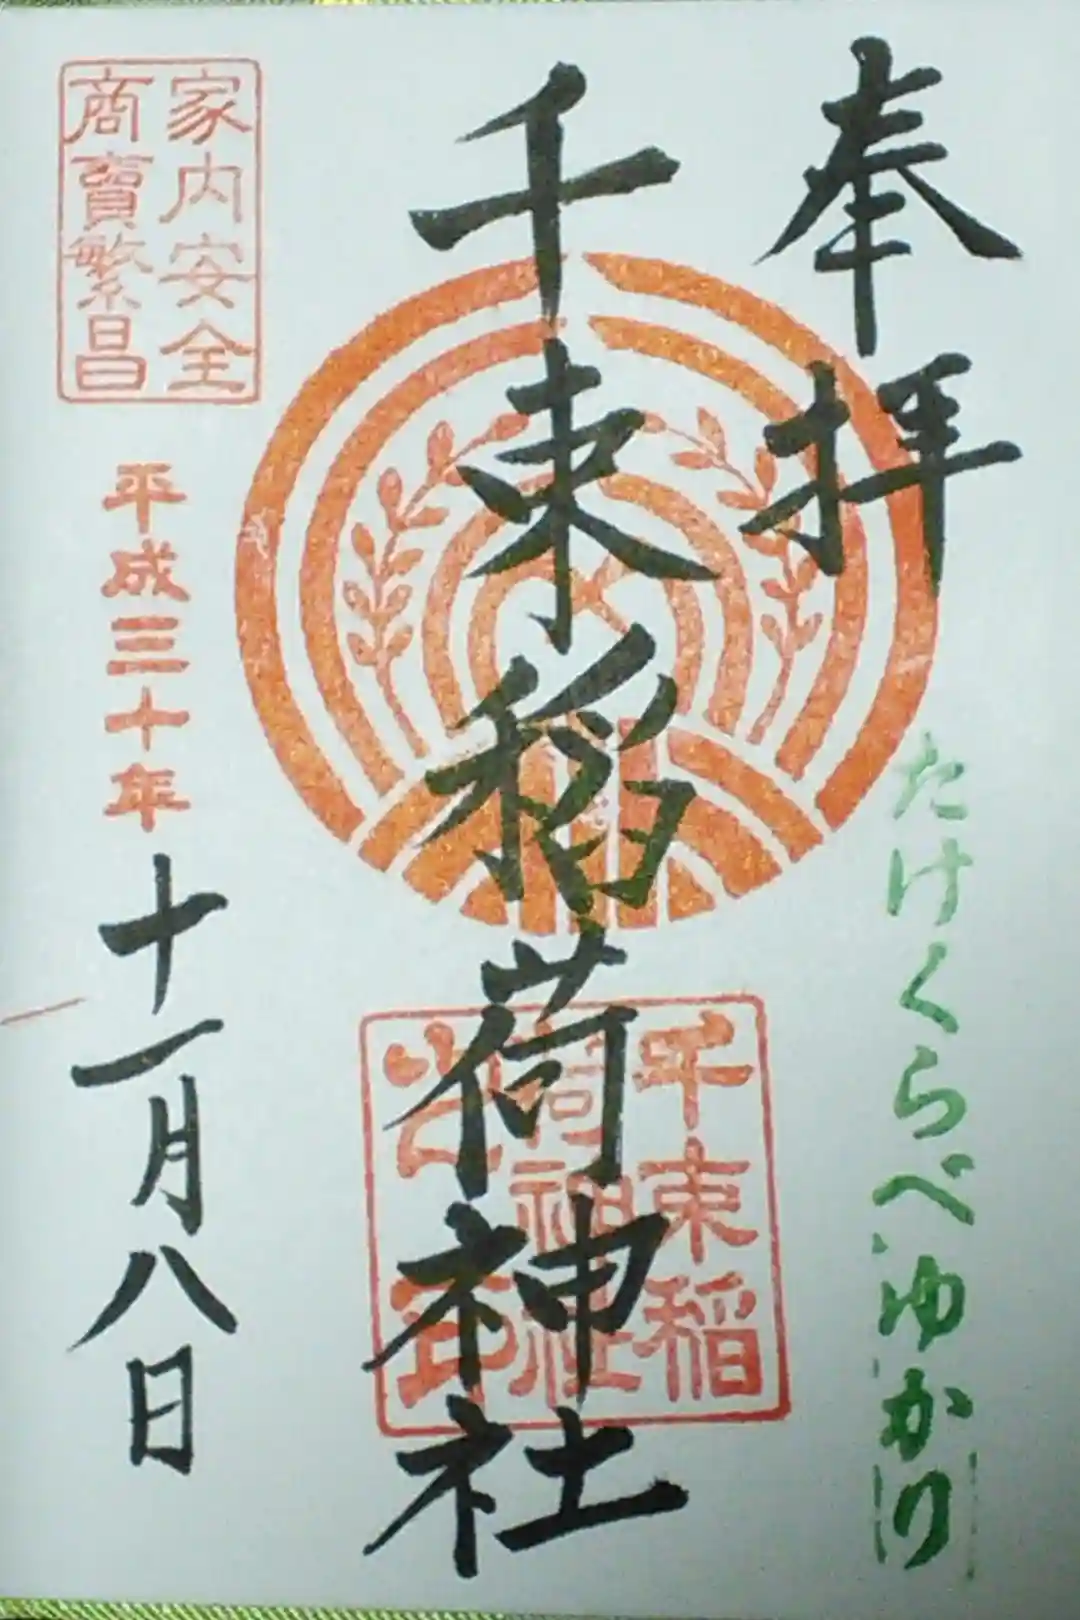 奉拝
たけくらべゆかり
千束稲荷神社
千束稲
荷神社
之印
家内安全
商賣繁昌
平成三十年
十一月八日